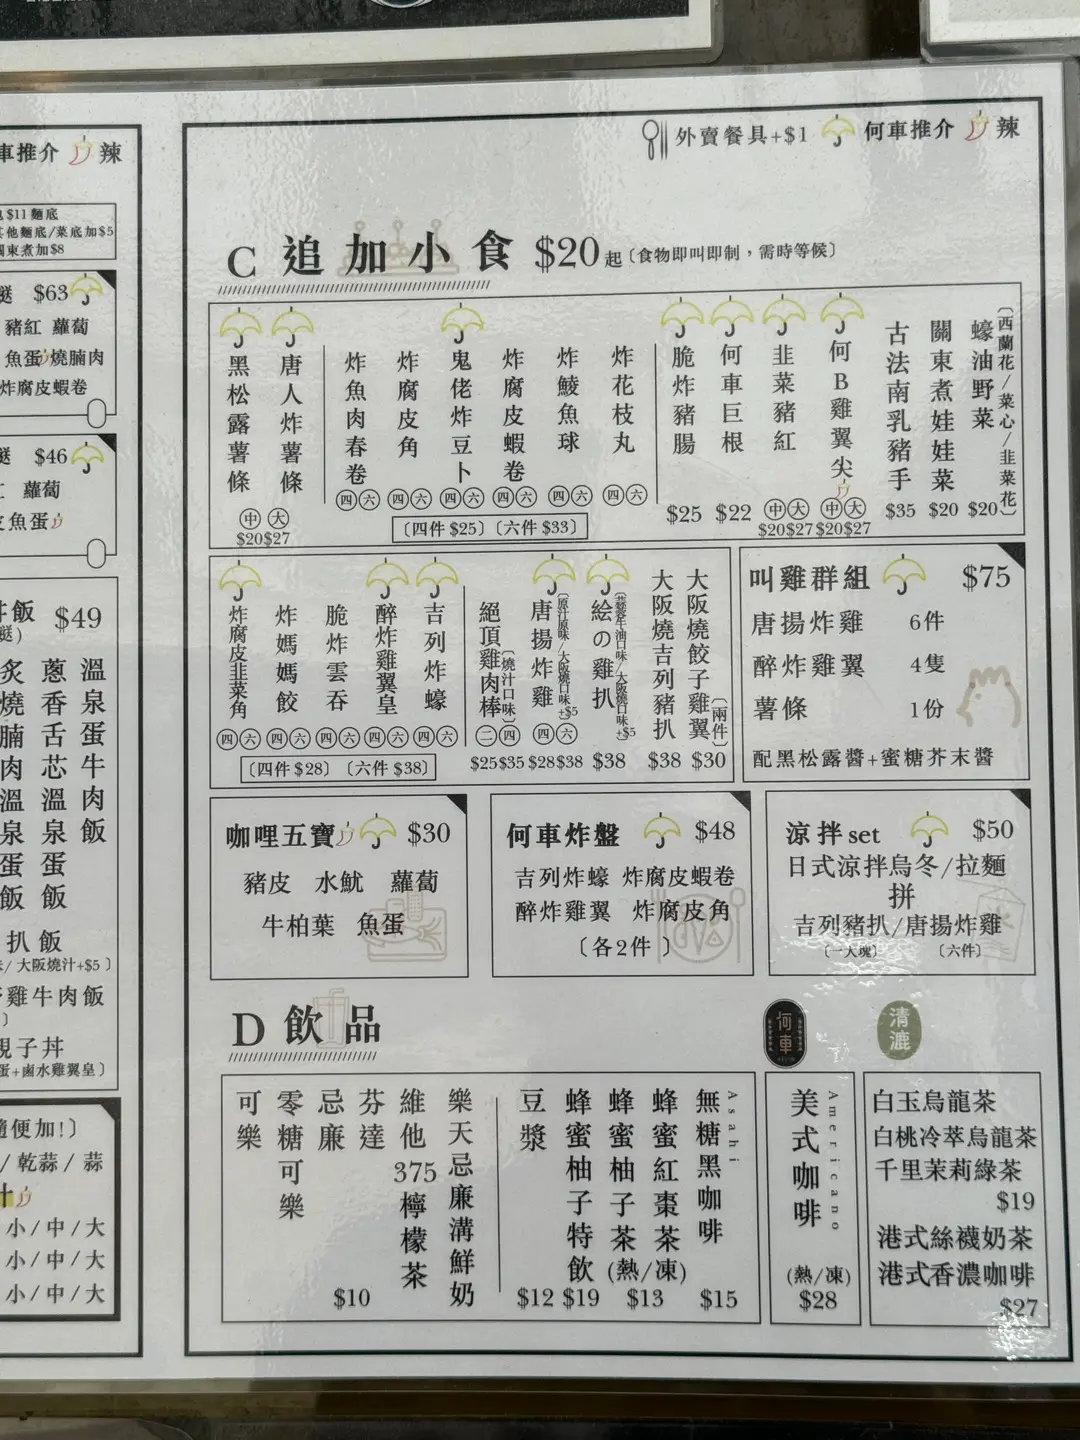 車推介 辣
$11 麵底
其他麵底/菜底加$5
關東煮加$8
$63
豬紅 蘿蔔
魚蛋 燒腩肉
炸腐皮蝦卷
$46
蘿蔔
魚蛋
飯 $49
炙燒腩肉溫泉蛋飯
蔥香舌芯溫泉蛋飯
溫泉蛋牛肉飯
扒飯
/大阪燒汁+$5〕
雞牛肉飯
親子丼
蛋+鹵水雞翼皇〕
隨便加!〕
/ 乾蒜 / 蒜
汁
小/中/大
小/中/大
小/中/大
外賣餐具+$1 何車推介 辣
C 追加小食 $20起〔食物即叫即制，需時等候〕
黑松露薯條
唐人炸薯條
中 大
$20 $27
炸魚肉春卷 四 六
炸腐皮角 四 六
鬼佬炸豆卜 四 六
炸腐皮蝦卷 四 六
炸鯪魚球 四 六
炸花枝丸 四 六
〔四件 $25〕〔六件 $33〕
脆炸豬腸 $25
何車巨根 $22
韭菜豬紅 中 大 $20 $27
何B雞翼尖 中 大 $20 $27
古法南乳豬手 $35
關東煮娃娃菜 $20
蠔油野菜 $20
〔西蘭花/菜心/韭菜花〕
炸腐皮韭菜角 四 六
炸媽媽餃 四 六
脆炸雲吞 四 六
醉炸雞翼皇 四 六
吉列炸蠔 四 六
〔四件 $28〕〔六件 $38〕
絕頂雞肉棒〔燒汁口味〕 二 四 $25 $35
唐揚炸雞〔原汁原味/大阪燒口味+$5〕 四 六 $28 $38
絵の雞扒 $38
大阪燒吉列豬扒 $38
大阪燒餃子雞翼〔兩件〕 $30
叫雞群組 $75
唐揚炸雞 6件
醉炸雞翼 4隻
薯條 1份
配黑松露醬+蜜糖芥末醬
咖哩五寶 $30
豬皮 水魷 蘿蔔
牛柏葉 魚蛋
何車炸盤 $48
吉列炸蠔 炸腐皮蝦卷
醉炸雞翼 炸腐皮角
〔各2件〕
涼拌set $50
日式涼拌烏冬/拉麵
拼
吉列豬扒/唐揚炸雞
〔一大塊〕 〔六件〕
D 飲品
何車
清漉
可樂
零糖可樂
忌廉
芬達
維他375檸檬茶
樂天忌廉溝鮮奶
$10
豆漿 $12
蜂蜜柚子特飲 $19
蜂蜜柚子茶
蜂蜜紅棗茶
(熱/凍)
$13
無糖黑咖啡 Asahi
$15
美式咖啡 Americano
(熱/凍)
$28
白玉烏龍茶
白桃冷萃烏龍茶
千里茉莉綠茶
$19
港式絲襪奶茶
港式香濃咖啡
$27